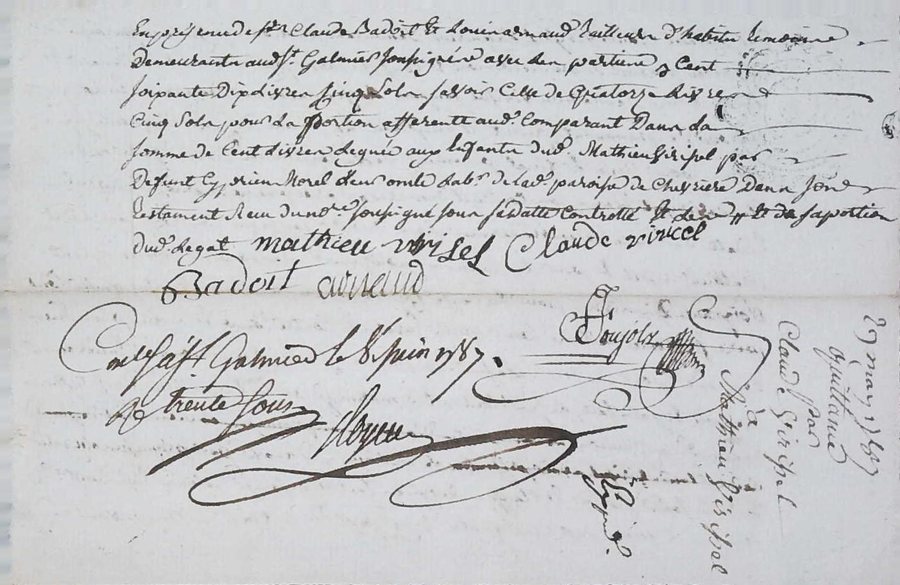 En presence de Sr Claude Badoit Et Louis arnaud tailleur d'habits temoins
Demeurants aud. St. Galmier soussignés avec les parties
Cent
soixante Dix livres Cinq Sols savoir Celle de Quatorze livres
Cinq Sols pour la portion afferente aud. Comparant Dans la
somme de Cent livres leguée aux Enfants dud. Mathieu Girissel par
Defunt Cyprien Morel leur oncle lab.r de lad. paroisse de Chevriere Dans son
testament Recu du no.re soussigné sous sa datte Controllé Et
Et de sa portion
dud. Legat mathieu Claude
Badoit arnaud
Con.lé à St. Galmier le 8 juin 1787.
Re trente sous
29 may 1787
quittance
par
Claude Girissel
à
Mathieu Girissel
Expié.